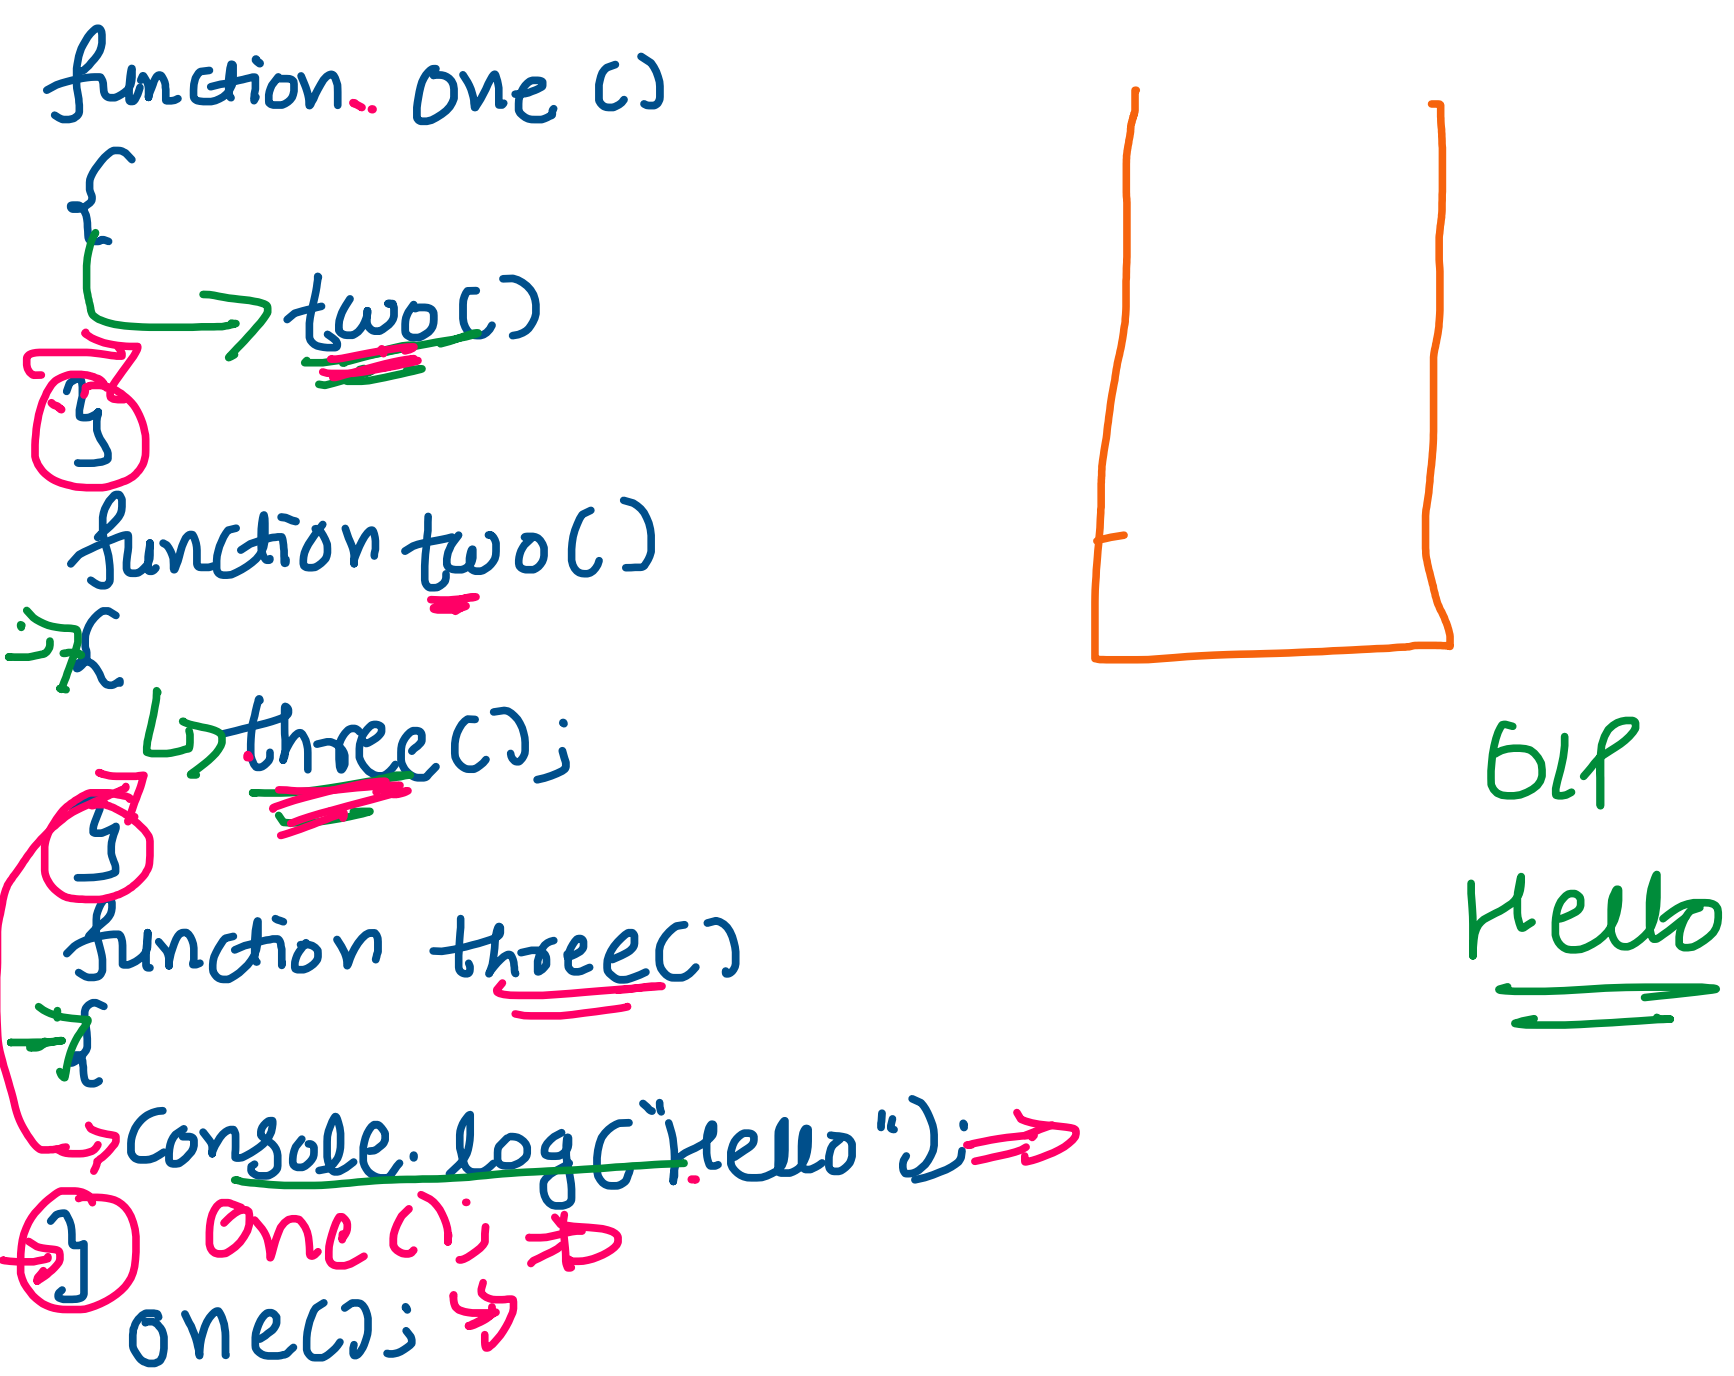 function one ()
{
two()
}
function two()
{
three();
}
function three()
{
Console.log("Hello");
} one();
one();
O/P
Hello